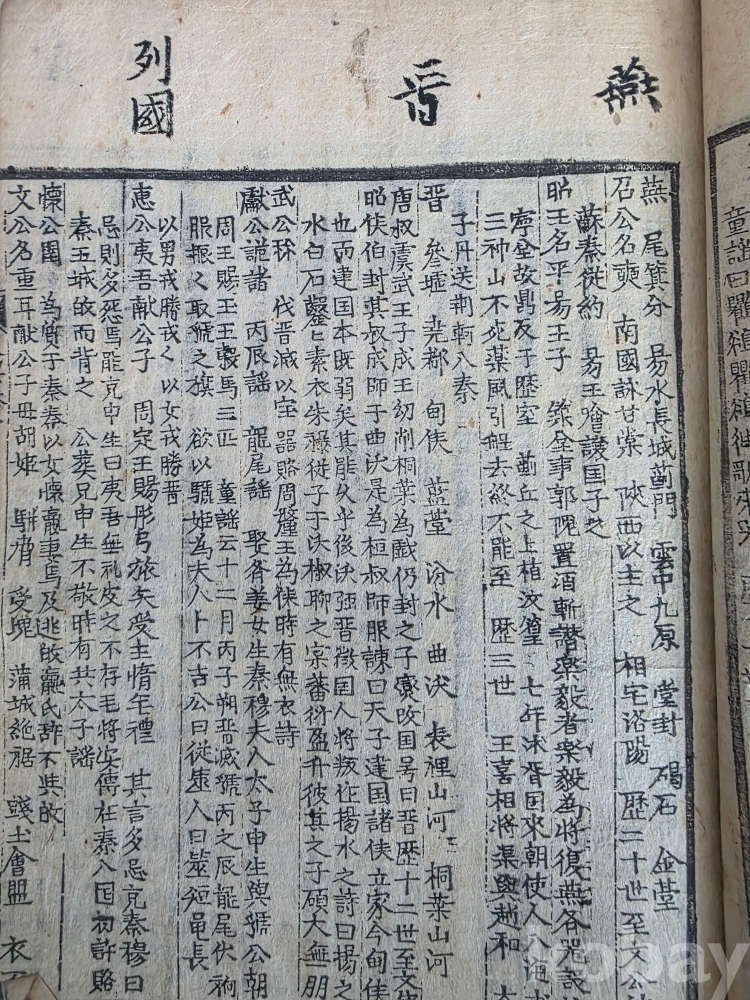 燕
晋
列國
燕 尾箕分 易水長城薊門 雲中九原 堂封 碣石 金䑓
召公名奭 南國詠甘棠 陝西以主之 相宅洛陽 歷二十世至文公
蘇秦従約 易王噲讓国子之
昭王名平易王子 築金事郭隗置酒 樂毅者樂毅為將復燕
寧全故鼎反于歷室 薊丘之上植汶篁 七年 国來朝使人入海
三神山不死藥風引舡去終不能至 歷三世 王喜相將渠與越和
子丹送荆軻入秦
晋 參墟 堯都 甸侯 䑓 汾水 曲沃 表裡山河 桐葉山河
唐叔虞武王子成王幼削桐葉為戱仍封之子爕改国号曰晋歷十二世至文
昭侯伯封其叔成師于曲沃是為桓叔師服諫曰天子建国諸侯立家今甸侯
也而建国本旣弱矣其能久乎後沃强晋微国人將叛作揚水之詩曰揚之
水白石鑿匕素衣朱襮従子于沃椒聊之宲蕃衍盈升彼其之子碩大無朋
武公称 伐晋滅以宝器賂周釐王為侯時有無衣詩
獻公詭諸 丙辰謠 龍尾謠 娶齐姜女生秦穆夫人太子申生與虢公朝
周王賜玉五瑴馬三匹 童謠云十二月丙子朔晋滅虢丙之辰龍尾伏
服振匕取虢之旗 欲以驪姬為夫人卜不吉公曰従筮人曰筮短龜長
以男戎勝戎匕以女戎勝晋
惠公夷吾献公子 周定王賜彤弓旅矢受玉惰年禮 其言多忌克秦穆曰
忌則多怨焉能克申生曰夷吾無礼皮之不存毛將安傳在秦入国初許賂
秦五城故而背之 公葬兄申生不敬時有共太子謠
懷公圉 為質于秦秦以女懷嬴妻焉及逃故嬴氏辞不與故
文公名重耳献公子母胡姬 騈脅 受塊 蒲城絶裾 踐土會盟 衣
童謠曰